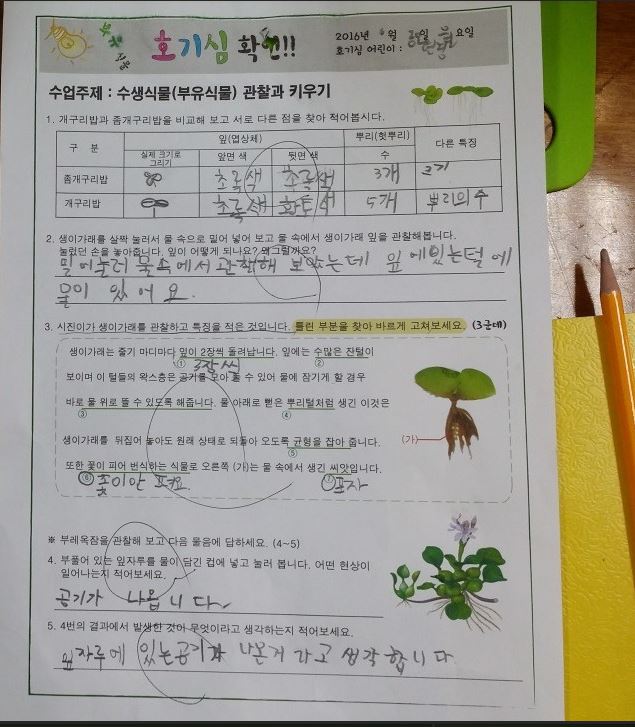 호기심 확인!!
2016년 6월 일 요일
호기심 어린이 :
수업주제 : 수생식물(부유식물) 관찰과 키우기
1. 개구리밥과 좀개구리밥을 비교해 보고 서로 다른 점을 찾아 적어봅시다.
구 분 잎(엽상체) 뿌리(헛뿌리) 다른 특징
실제 크기로 그리기 앞면 색 뒷면 색 수
좀개구리밥 초록색 초록색 3개 크기
개구리밥 초록색 황토색 5개 뿌리의 수
2. 생이가래를 살짝 눌러서 물 속으로 밀어 넣어 보고 물 속에서 생이가래 잎을 관찰해봅니다.
눌렀던 손을 놓아줍니다. 잎이 어떻게 되나요? 왜그럴까요?
밀어눌러 물속에서 관찰해 보았는데 잎에있는털에
물이 있어요.
3. 시진이가 생이가래를 관찰하고 특징을 적은 것입니다. 틀린 부분을 찾아 바르게 고쳐보세요. (3군데)
생이가래는 줄기 마디마다 잎이 2장씩 돌려납니다. 잎에는 수많은 잔털이
① 3장씩 ②
보이며 이 털들의 왁스층은 공기를 모아 둘 수 있어 물에 잠기게 할 경우
바로 물 위로 뜰 수 있도록 해줍니다. 물 아래로 뻗은 뿌리털처럼 생긴 이것은
③ ④
생이가래를 뒤집어 놓아도 원래 상태로 되돌아 오도록 균형을 잡아 줍니다.
⑤
또한 꽃이 피어 번식하는 식물로 오른쪽 (가)는 물 속에서 생긴 씨앗입니다.
⑥ 꽃이안 펴요. ⑦ 포자
(가)
※ 부레옥잠을 관찰해 보고 다음 물음에 답하세요. (4~5)
4. 부풀어 있는 잎자루를 물이 담긴 컵에 넣고 눌러 봅니다. 어떤 현상이
일어나는지 적어보세요.
공기가 나옵니다.
5. 4번의 결과에서 발생한 것이 무엇이라고 생각하는지 적어보세요.
잎자루에 있는공기가 나온거 라고 생각합니다